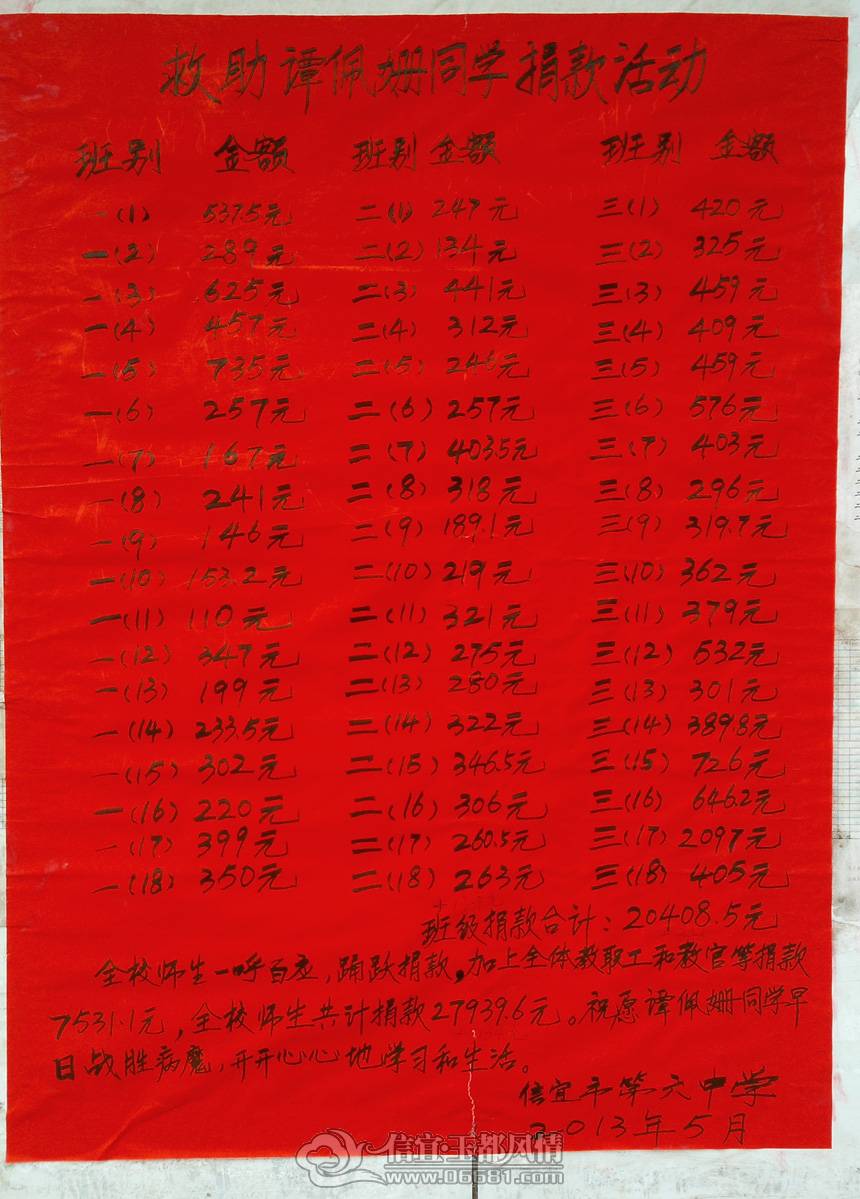 救助谭佩姗同学捐款活动
班别 金额 班别 金额 班别 金额
一(1) 537.5元 二(1) 247元 三(1) 420元
一(2) 289元 二(2) 134元 三(2) 325元
一(3) 625元 二(3) 441元 三(3) 459元
一(4) 457元 二(4) 312元 三(4) 409元
一(5) 735元 二(5) 246元 三(5) 459元
一(6) 257元 二(6) 257元 三(6) 576元
一(7) 167元 二(7) 403.5元 三(7) 403元
一(8) 241元 二(8) 318元 三(8) 296元
一(9) 146元 二(9) 189.1元 三(9) 319.7元
一(10) 153.2元 二(10) 219元 三(10) 362元
一(11) 110元 二(11) 321元 三(11) 379元
一(12) 347元 二(12) 275元 三(12) 532元
一(13) 199元 二(13) 280元 三(13) 301元
一(14) 233.5元 二(14) 322元 三(14) 389.8元
一(15) 302元 二(15) 346.5元 三(15) 726元
一(16) 220元 二(16) 306元 三(16) 646.2元
一(17) 399元 二(17) 260.5元 三(17) 2097元
一(18) 350元 二(18) 263元 三(18) 405元
班级捐款合计：20408.5元
全校师生一呼百应，踊跃捐款，加上全体教职工和教官等捐款
7531.1元，全校师生共计捐款27939.6元。祝愿谭佩姗同学早
日战胜病魔，开开心心地学习和生活。
信宜市第六中学
2013年5月
信宜·玉都风情
www.06681.com